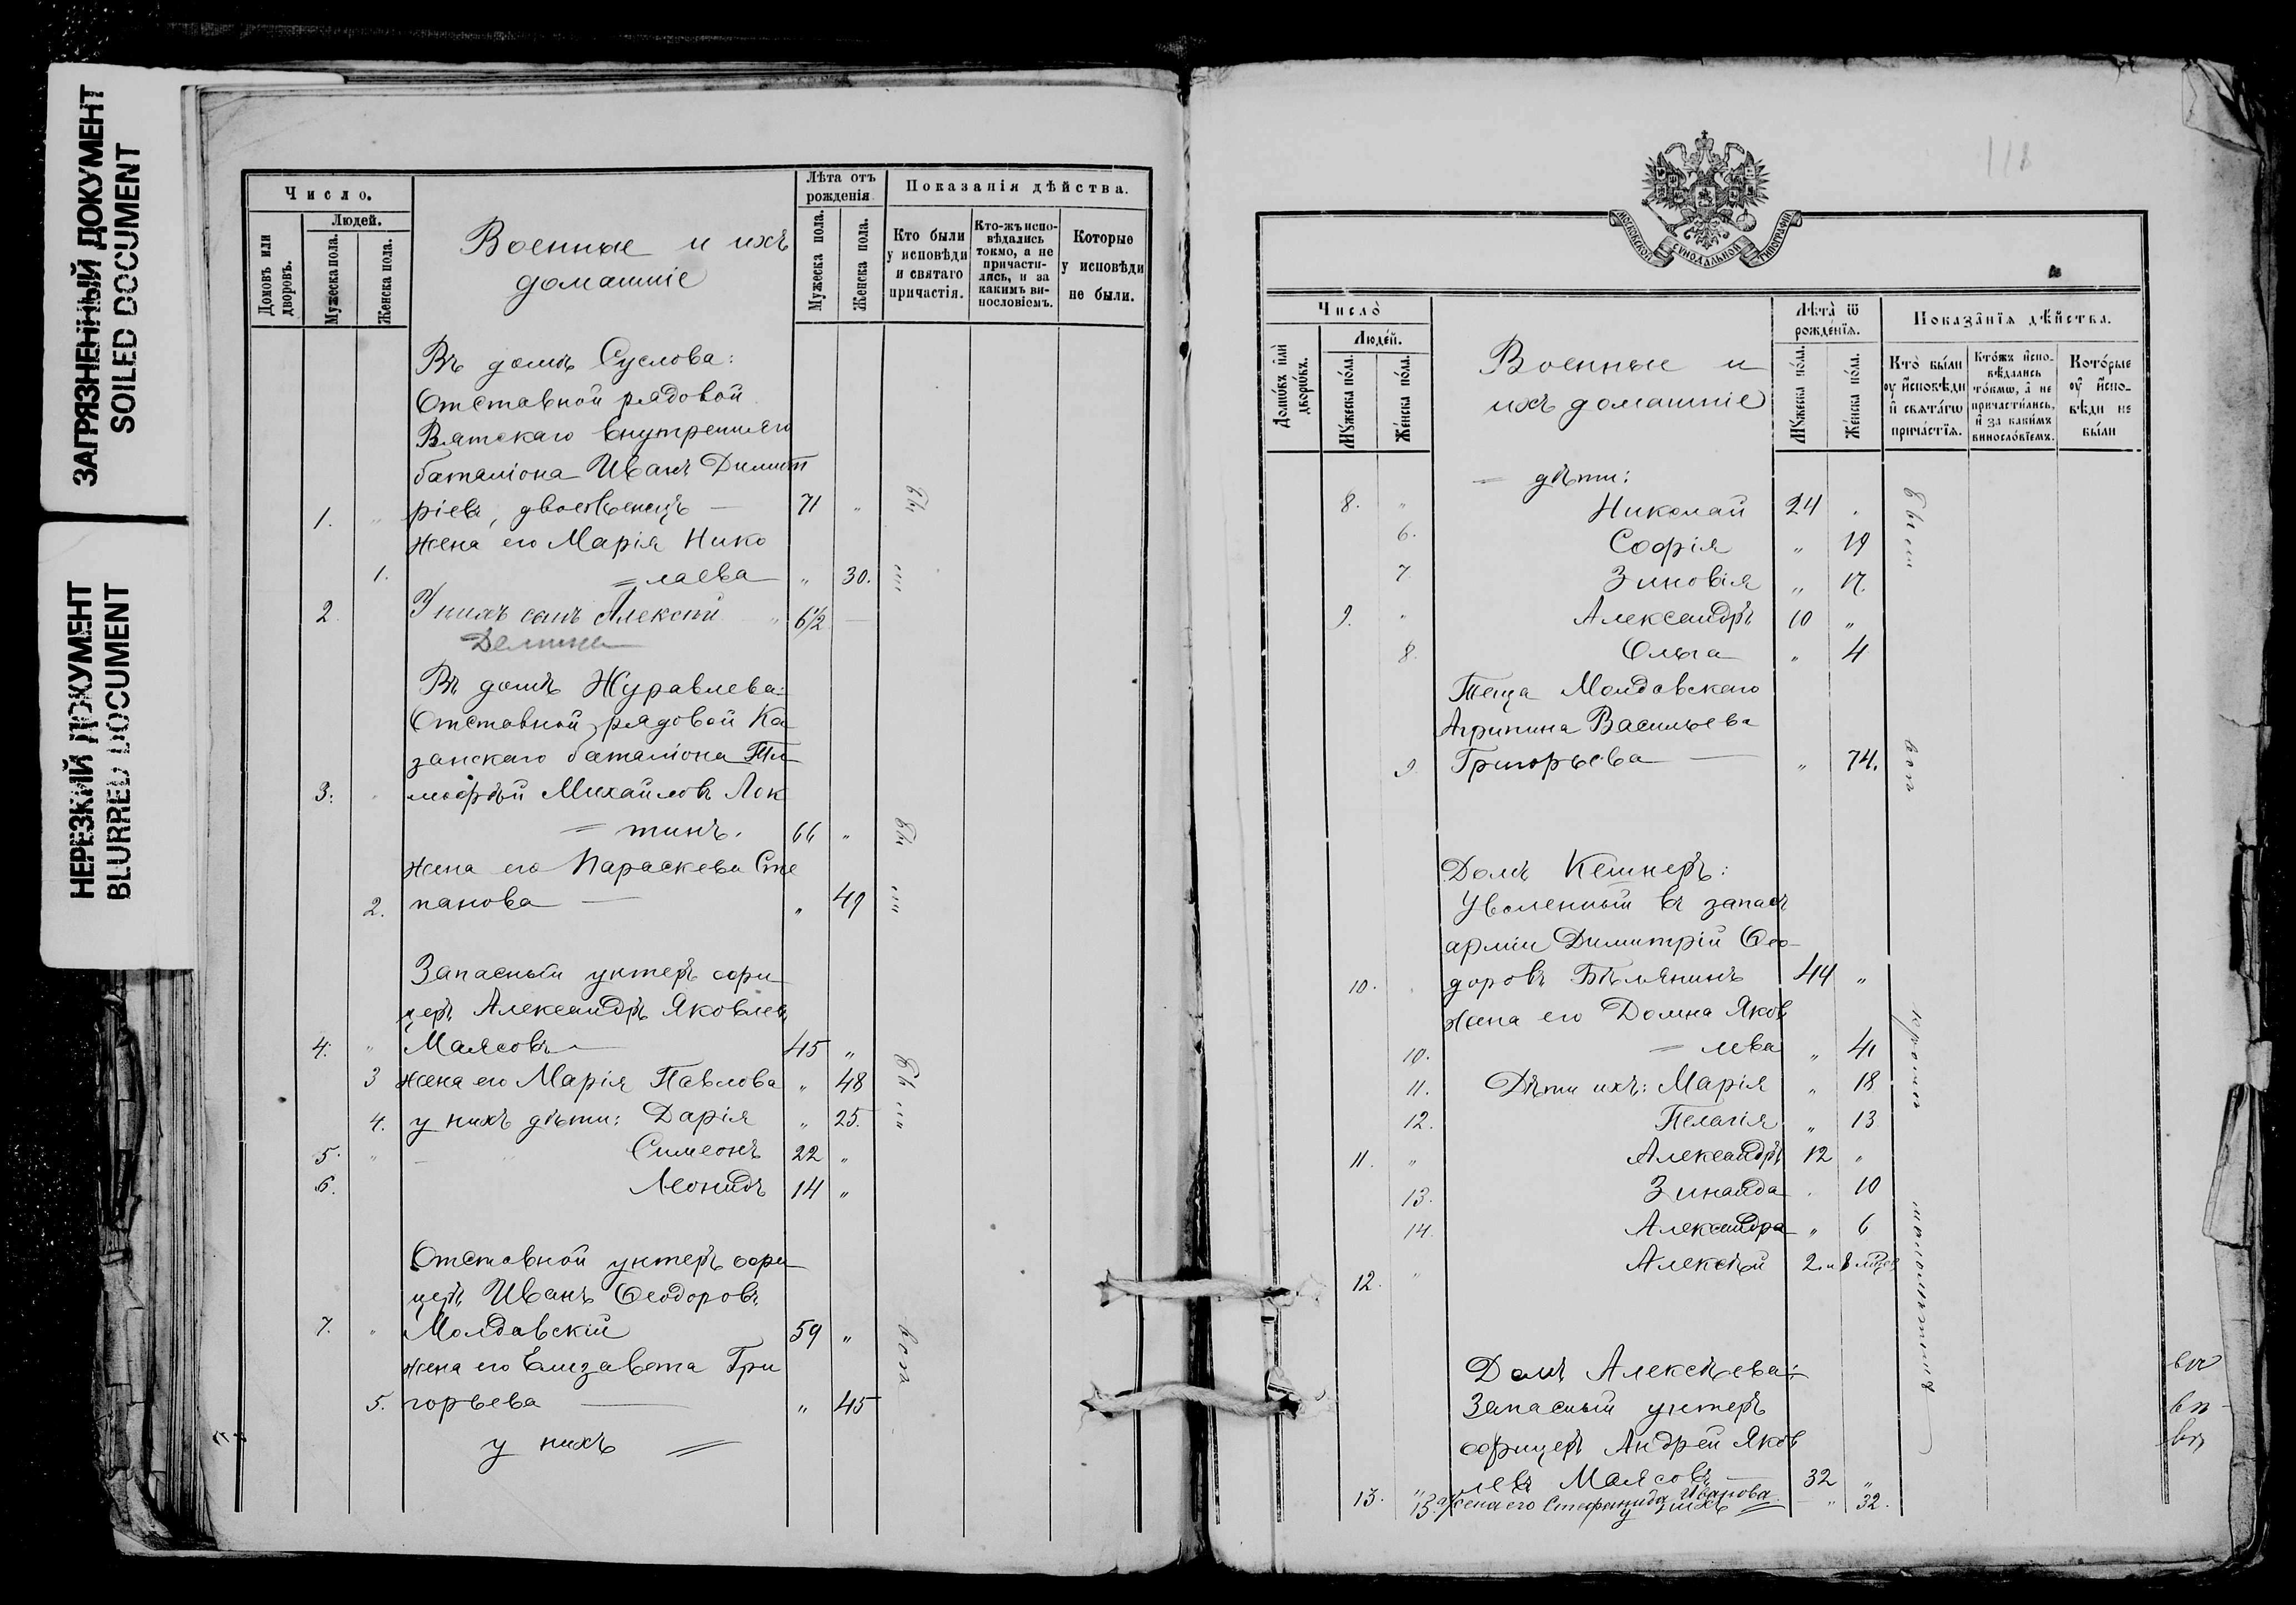 ЗАГРЯЗНЕННЫЙ ДОКУМЕНТ
SOILED DOCUMENT
НЕРЕЗКИЙ ДОКУМЕНТ
BLURRED DOCUMENT
Число.
Людей.
Домовъ или дворовъ.
Мужеска пола.
Женска пола.
Военные и ихъ
домашніе
Лѣта отъ рожденія
Мужеска пола.
Женска пола.
Показанія дѣйства.
Кто были у исповѣди и святаго причастія.
Кто-жъ исповѣдались токмо, а не причастились, и за какимъ винословіемъ.
Которые у исповѣди не были.
Въ домѣ Суслова:
Отставной рядовой
Вятскаго внутренняго
баталіона Иванъ Димит
1. " ріевъ, — 71 "
Жена его Марія Нико
1. = лаева " 30.
2. У нихъ сынъ Алексѣй " 6 1/2 —
Въ домѣ Журавлева:
Отставной рядовой Ка
занскаго баталіона Ти
3. " моѳѣй Михайловъ Лок
= тинъ. 66 "
Жена его Параскева Сте
2. панова — " 49
Запасный унтеръ офи
церъ Александръ Яковлевъ
4. " Малясовъ — 45 "
3 Жена его Марія Павлова " 48
4. у нихъ дѣти: Дарія " 25.
5. " Симеонъ 22 "
6. Леонидъ 14 "
Отставной унтеръ офи
церъ Иванъ Ѳеодоровъ
7. " Молдавскій 59 "
Жена его Елизавета Гри
5. горьева — " 45
у нихъ =
были
были
были
всѣ
118
МОСКОВСКОЙ СѴНОДАЛЬНОЙ ТИПОГРАФІИ
Число̀
Люде́й.
Домѡ́въ и҆лѝ дворѡ́въ.
Мꙋ́жеска по́ла.
Же́нска по́ла.
Военные и
ихъ домашніе
Лѣ́та ѿ рожде́нїѧ.
Мꙋ́жеска по́ла.
Же́нска по́ла.
Показа̑нїѧ дѣ́йства.
Кто̀ бы́ли ᲂу҆ и҆сповѣ́ди и҆ свѧта́гѡ прича́стїѧ.
Кто́жъ и҆сповѣ́дались то́кмѡ, а҆ не причасти́лись, и҆ за каки́мъ винослові́емъ.
Кото́рые ᲂу҆ и҆сповѣ́ди не бы́ли
= дѣти:
8. " Николай 24 "
6. Софія " 19
7. Зиновія " 17.
9. " Александръ 10 "
8. Ольга " 4
Теща Молдавскаго
Агрипина Васильева
9. Григорьева — " 74.
Домъ Кешнеръ:
Уволенный въ запасъ
арміи Димитрій Ѳео-
10. доровъ Бѣлянинъ 44 "
Жена его Домна Яков
10. = лева " 41
11. Дѣти ихъ: Марія " 18
12. Пелагія " 13
11. " Александръ 12 "
13. Зинаида " 10
14. Александра " 6
12. " Алексѣй 2 и 8 мѣсяц
Домъ Алексѣева:
Запасный унтеръ
офицеръ Андрей Яков
13. " левъ Малясовъ — 32 "
15. Жена его Стефанида Иванова — " 32.
у нихъ =
были
всѣ
кромѣ
малолѣтнихъ